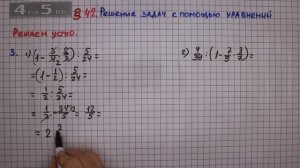 4.0.5.ru
§ 42. Решение задач с помощью уравнений
Решаем устно.
3. 1) (1 - 3/4 · 2/3) : 5/24 =
= (1 - 1/2) : 5/24 =
= 1/2 : 5/24 =
= 1/2 · 24 12/5 = 12/5 =
= 2 2
: (1 - 7/9 · 3/7) =